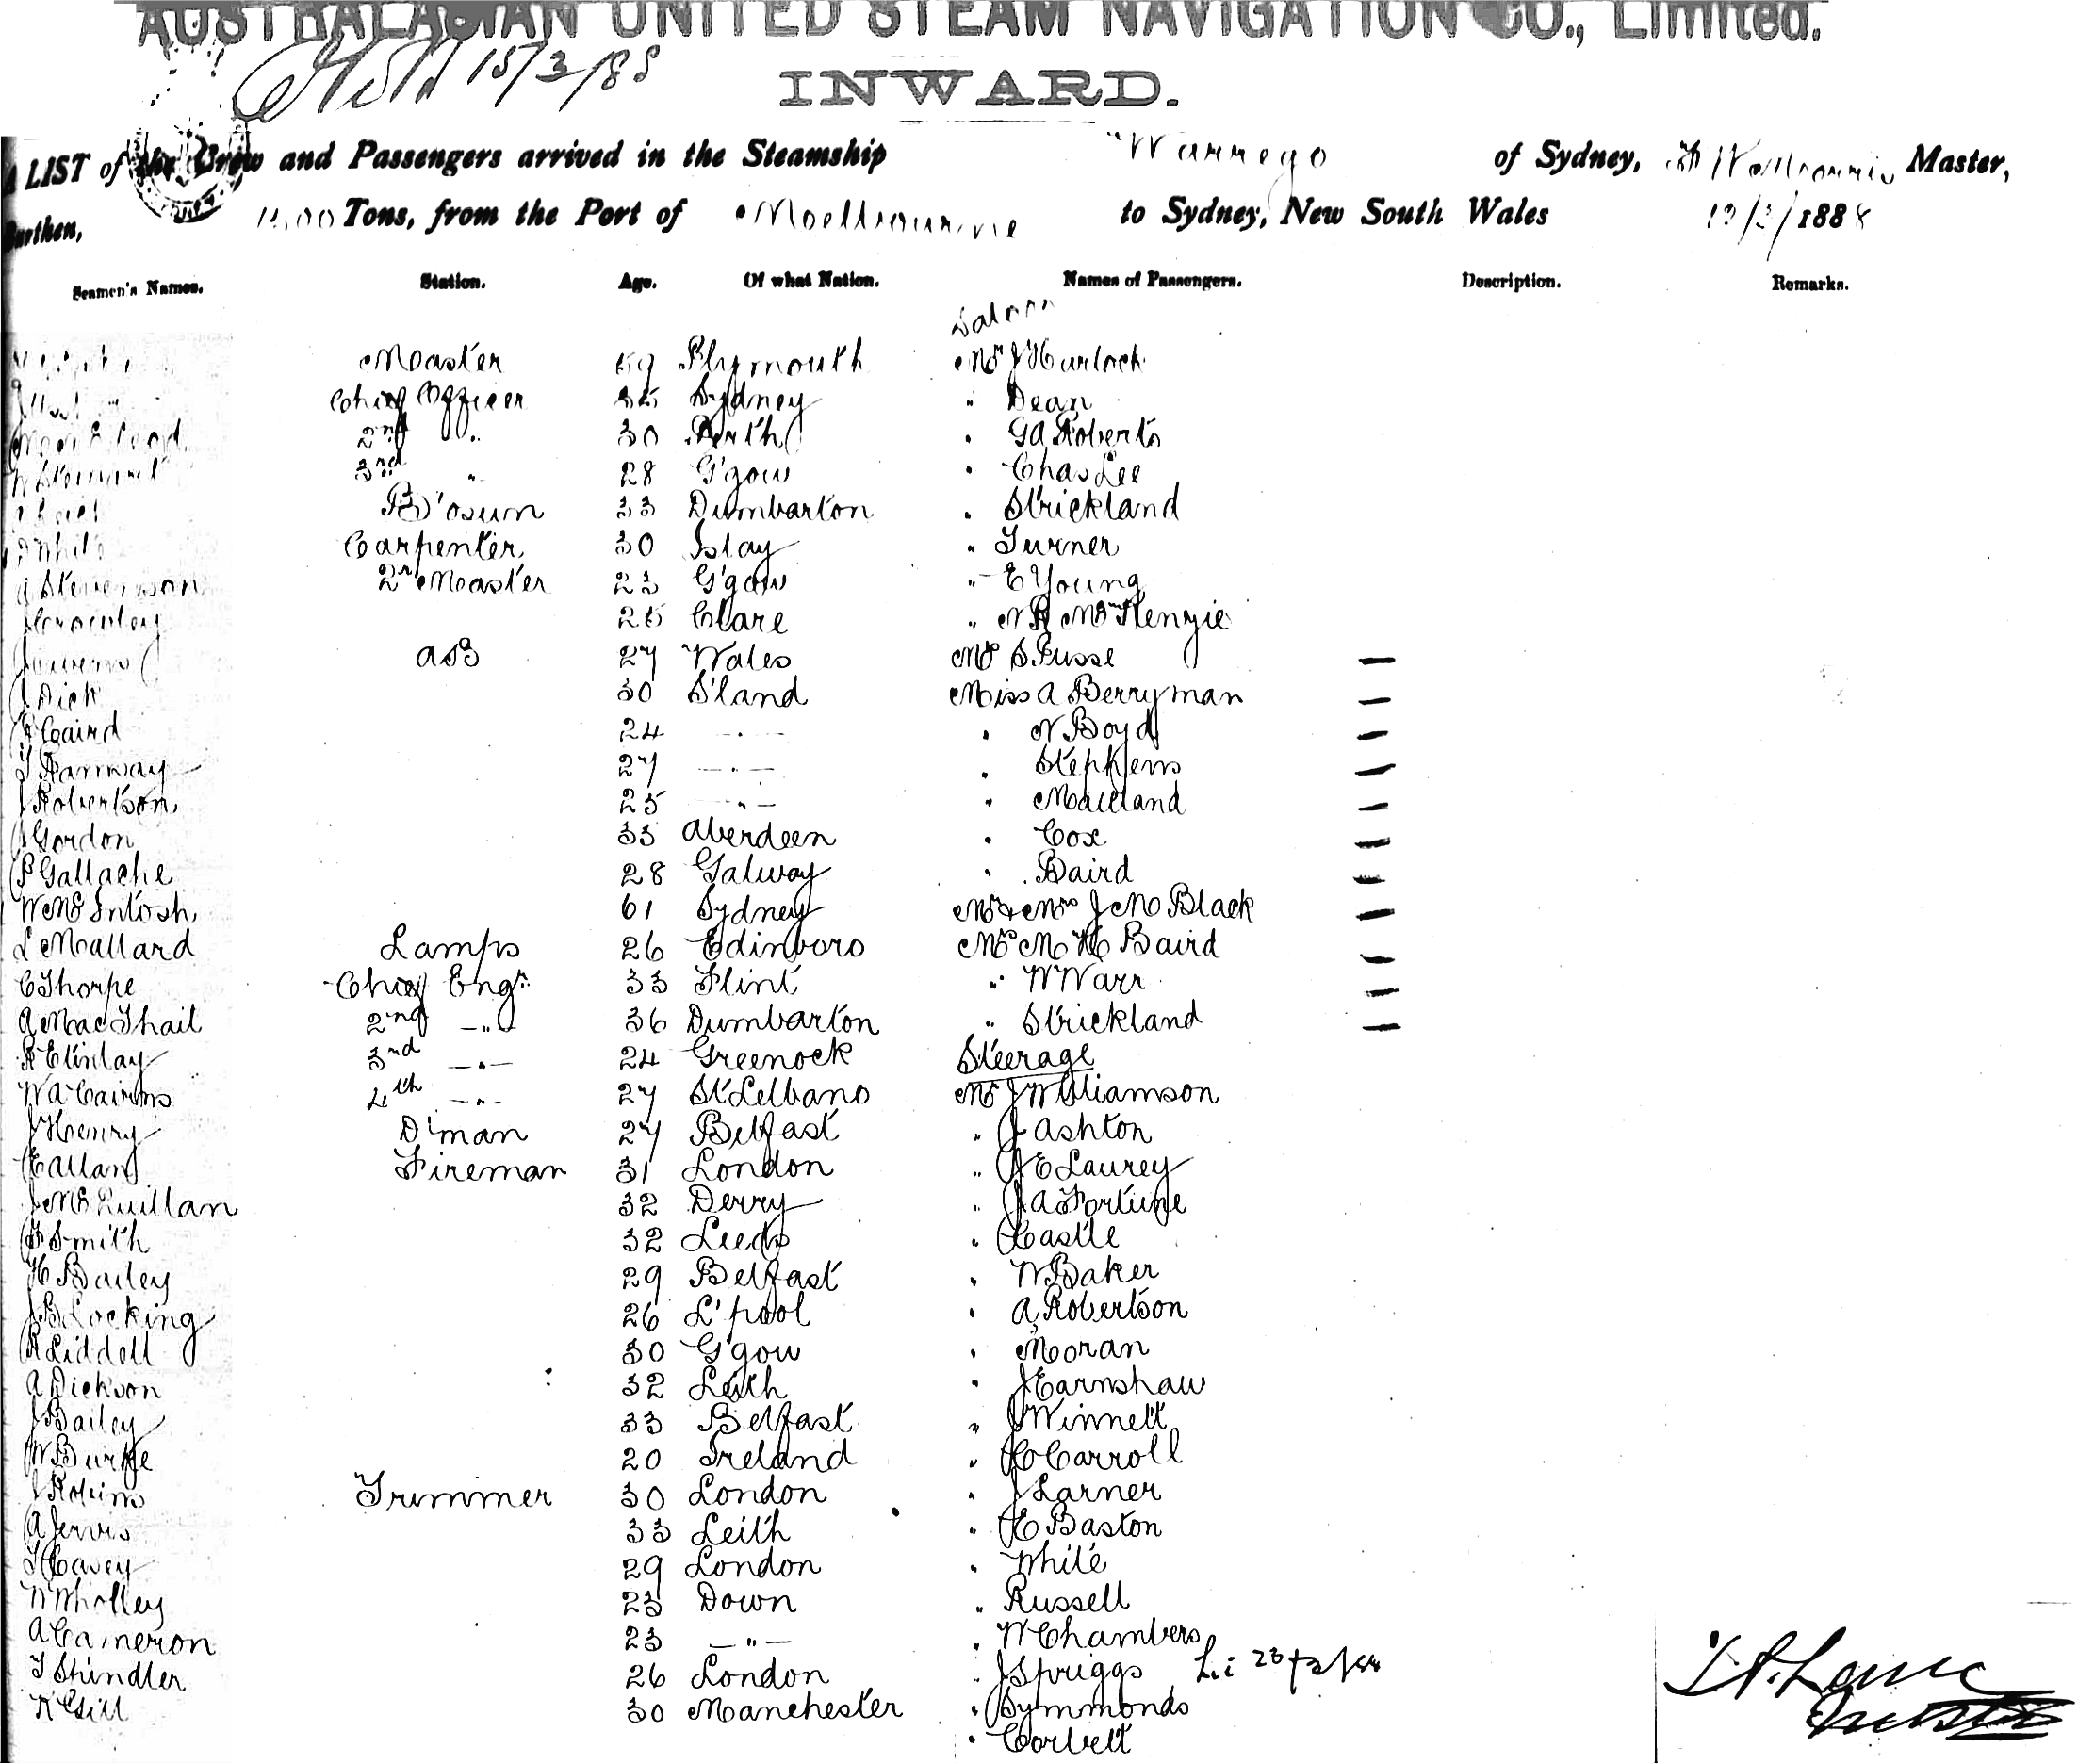 AUSTRALASIAN UNITED STEAM NAVIGATION CO., Limited.
15/3/88
INWARD.
A LIST of the Crew and Passengers arrived in the Steamship "Warrego of Sydney, Master,
Burthen, Tons, from the Port of Moelbourne to Sydney, New South Wales 1888
Seamen's Names. Station. Age. Of what Nation. Names of Passengers. Description. Remarks.
Saloon
Master 59 Plymouth Mr J Hurlock
Chief Officer 35 Sydney " Dean
2nd " 30 Perth " GA Roberts
3rd " 28 G'gow " Chas Lee
B'osun 33 Dumbarton " Strickland
White Carpenter 30 Islay " Turner
Stevenson 2nd Master 23 G'gow " E Young
J Crowley 25 Clare " McKenzie
AB 27 Wales S. Fusse —
Dick 30 S'land Miss A Berryman —
Caird 24 — " — " N Boyd —
27 — " — " Stephens —
J Robertson 25 — " — " Maitland —
Gordon 33 Aberdeen " Cox —
P Gallache 28 Galway " Baird —
W McIntosh 61 Sydney Mr & Mrs J M Black —
L Mallard Lamps 26 Edinboro Mrs M H Baird —
C Thorpe Chief Engr 33 Flint " W Warr —
A MacPhail 2nd — " — 36 Dumbarton " Strickland —
R Elinlay 3rd — " — 24 Greenock Steerage
W A Cairns 4th — " — 27 Mr J Williamson
J Henry D'man 27 Belfast " J Ashton
E Allan Fireman 31 London " E Laurey
J McQuillan 32 Derry " J A Fortune
Smith 32 Leeds " Castle
H Bailey 29 Belfast " W Baker
J B Locking 26 L'pool " A Robertson
R Liddell 30 G'gow " Moran
A Dickson 32 Leith " J Earnshaw
J Bailey 33 Belfast " J Winnett
W Burke 20 Ireland " Carroll
J Robins Trimmer 30 London " J Larner
A Jervis 33 Leith " E Baston
Casey 29 London " White
W Wholley 23 Down " Russell
A Cameron 23 — " — " W Chambers
T Shindler 26 London " J Spriggs
Gill 30 Manchester " Symmonds
" Corbett